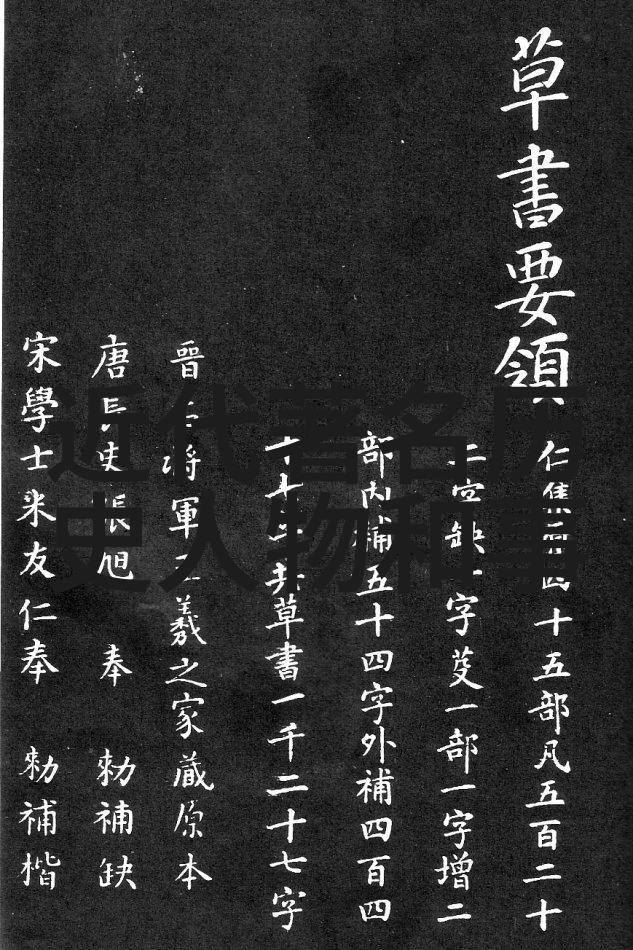 草書要領
仁集十五部凡五百二十
二字缺一字芟一部一字增二
部內補五十四字外補四百四
十七字共草書一千二十七字
晉右將軍王羲之家藏原本
唐長史張旭 奉 勑補缺
宋學士米友仁奉 勑補楷
近代著名历
史人物和事